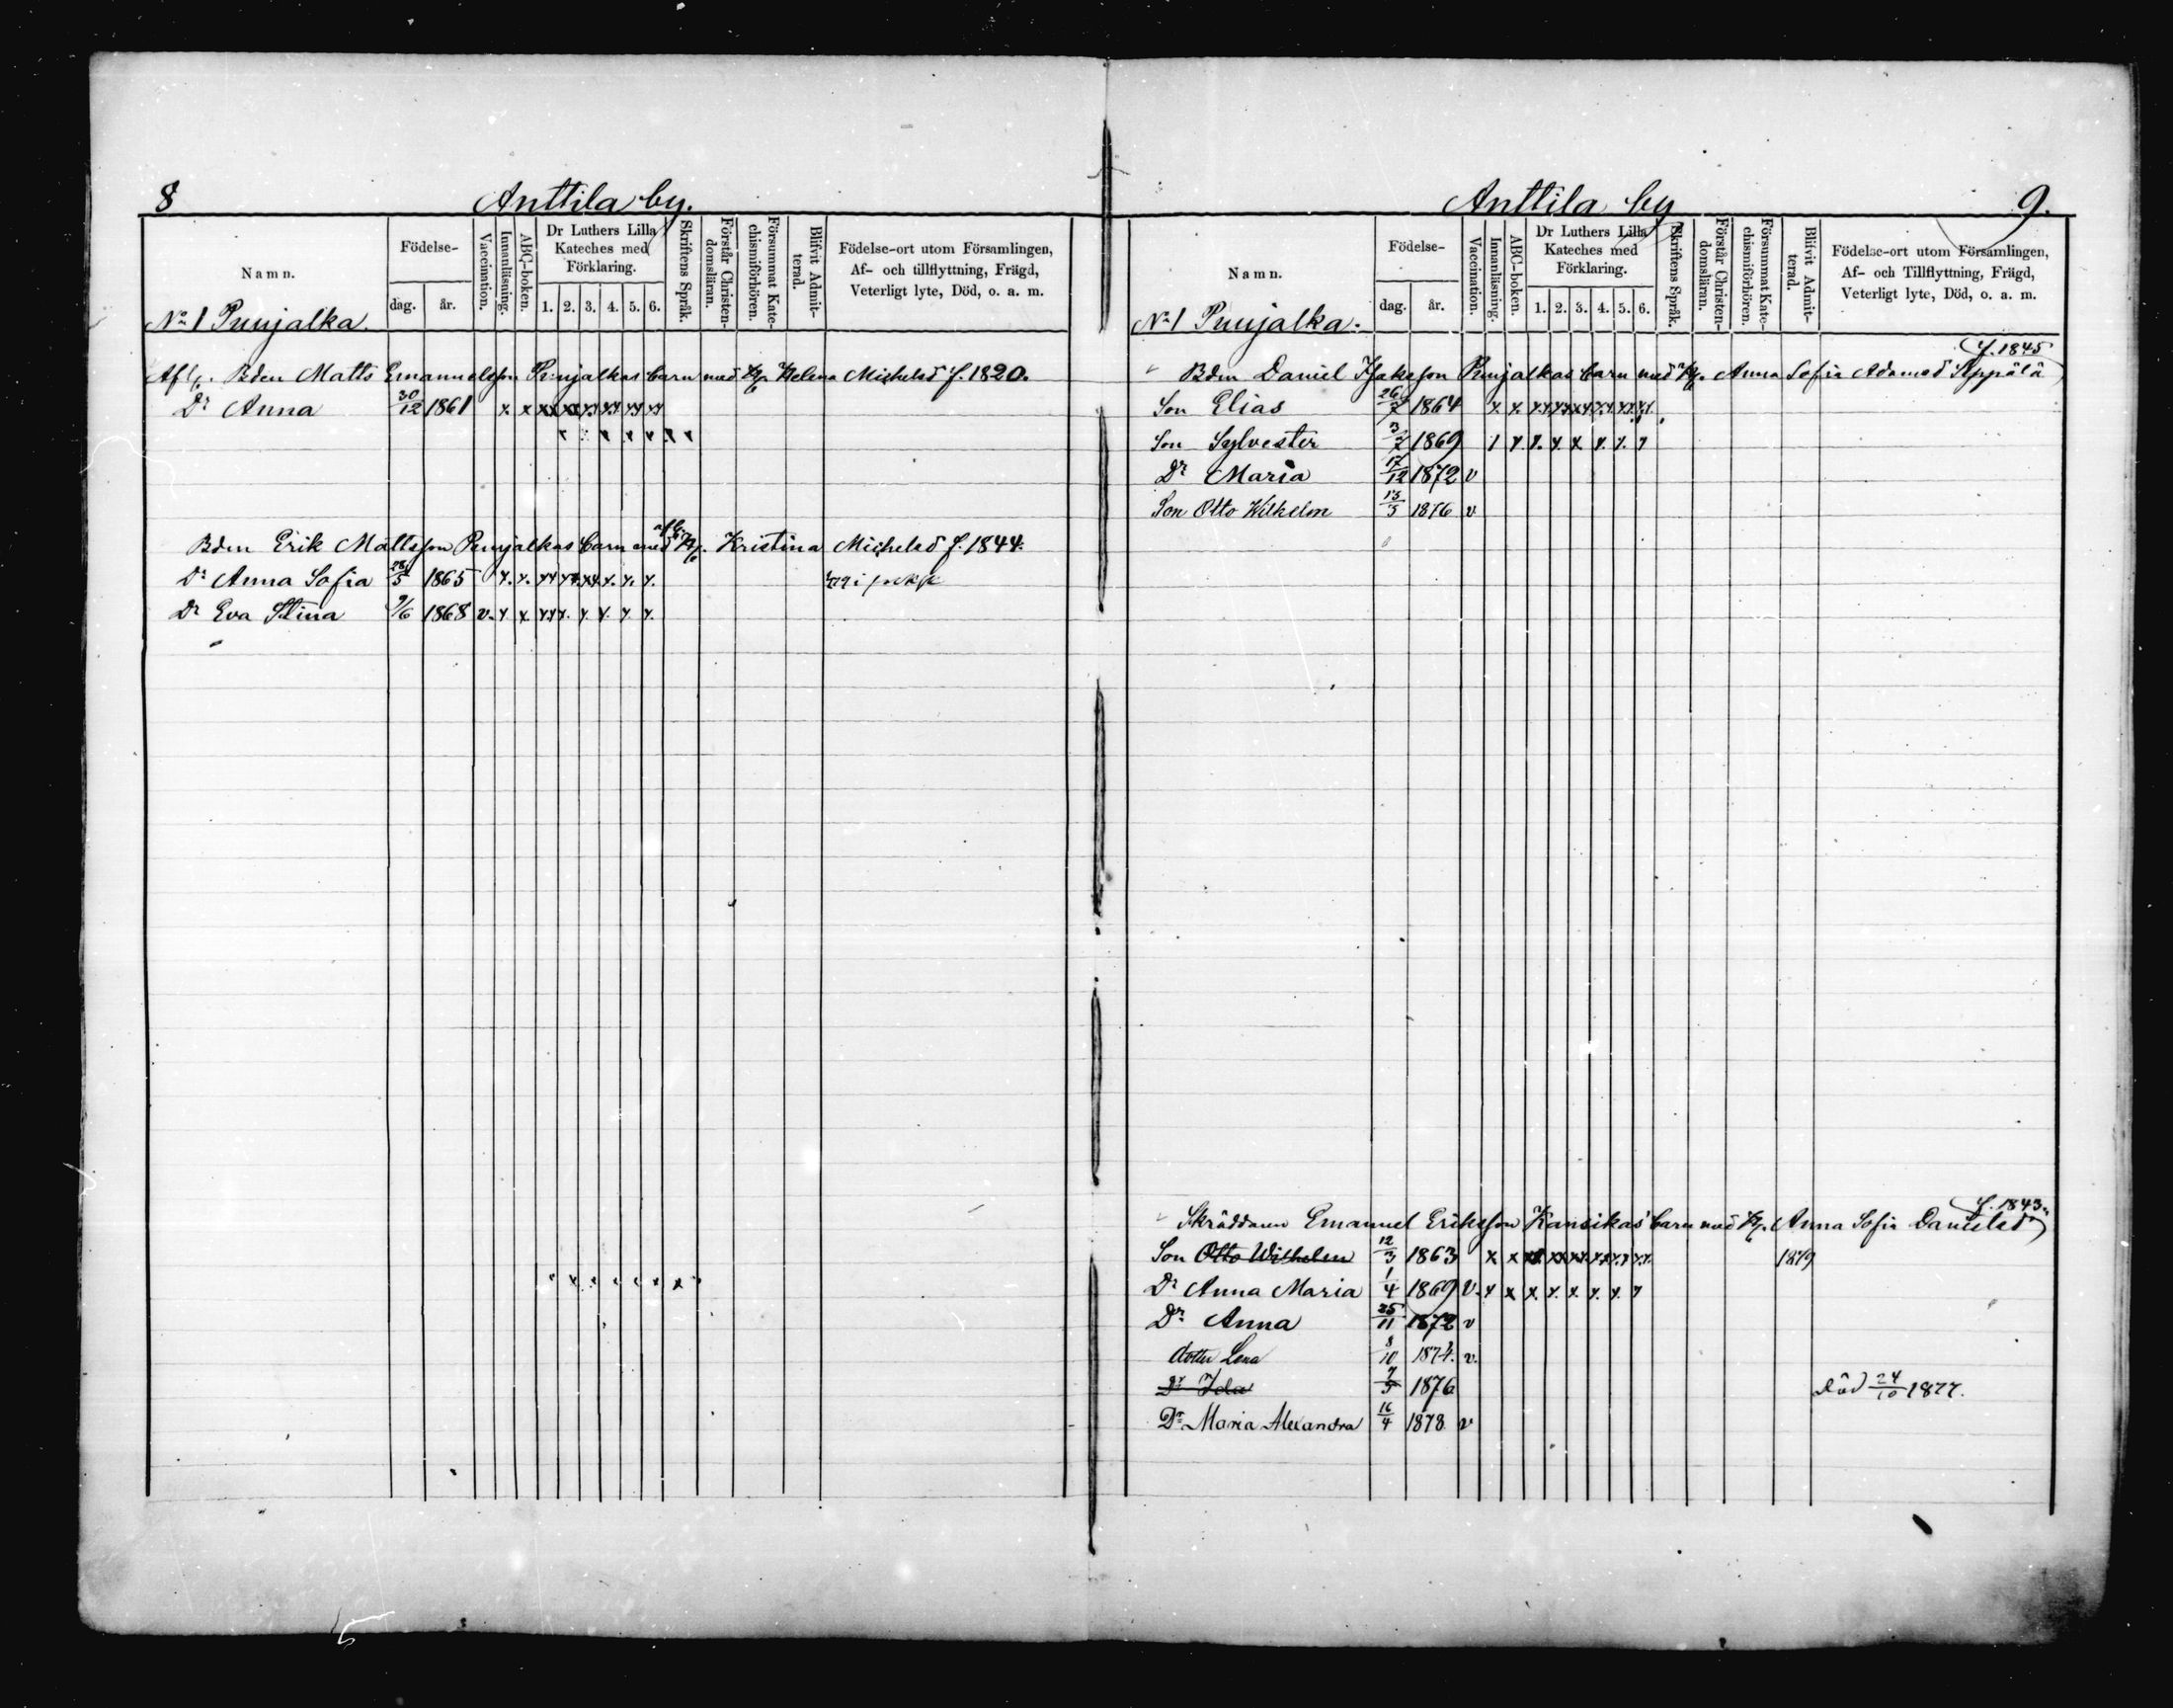 8 Anttila by.
Namn. Födelse- dag. år. Vaccination. Innanläsning. ABC-boken. Dr Luthers Lilla Kateches med Förklaring. 1. 2. 3. 4. 5. 6. Skriftens Språk. Förstår Christen-domsläran. Försummat Kate-chismiförhören. Blifvit Admit-terad. Födelse-ort utom Församlingen, Af- och tillflyttning, Frägd, Veterligt lyte, Död, o. a. m.
No 1 Punjalka.
Afl. Bden Matts Emanuelsson Punjalkas barn med Hu Helena Michelsd f. 1820.
Dr Anna 30/12 1861 x x xx xx xx xx xx xx
Bden Erik Mattsson Punjalkas barn med afl. Hu. Kristina Michelsd f. 1844.
Dr Anna Sofia 28/5 1865 x. x. xx xx. xx. x. x. x.
Dr Eva Stina 9/6 1868 v. x. x. xx x. x. x. x. x.
Anttila by 9.
Namn. Födelse- dag. år. Vaccination. Innanläsning. ABC-boken. Dr Luthers Lilla Kateches med Förklaring. 1. 2. 3. 4. 5. 6. Skriftens Språk. Förstår Christen-domsläran. Försummat Kate-chismiförhören. Blifvit Admit-terad. Födelse-ort utom Församlingen, Af- och Tillflyttning, Frägd, Veterligt lyte, Död, o. a. m.
No 1 Punjalka.
f. 1845
Bden Daniel Isaksson Punjalkas barn med Hu. Anna Sofia Adamsd Äppälä
Son Elias 26/7 1864 x. x. xx xx xx xx xx xx
Son Sylvester 3/7 1869 x x. x. x. x x. x. x
Dr Maria 17/12 1872 v
Son Otto Wilhelm 13/3 1876 v
f. 1843.
Skräddaren Emanuel Eriksson Kansikas barn med Hu. Anna Sofia Danielsd
Son Otto Wilhelm 12/3 1863 x x xx xx xx. xx xx xx. 1879
Dr Anna Maria 1/4 1869 v. x x x. x. x. x. x. x
Dr Anna 25/11 1872 v
dotter Lena 8/10 1874. v.
Dr Ida 7/5 1876 död 24/10 1877.
Dr Maria Alexandra 16/4 1878 v